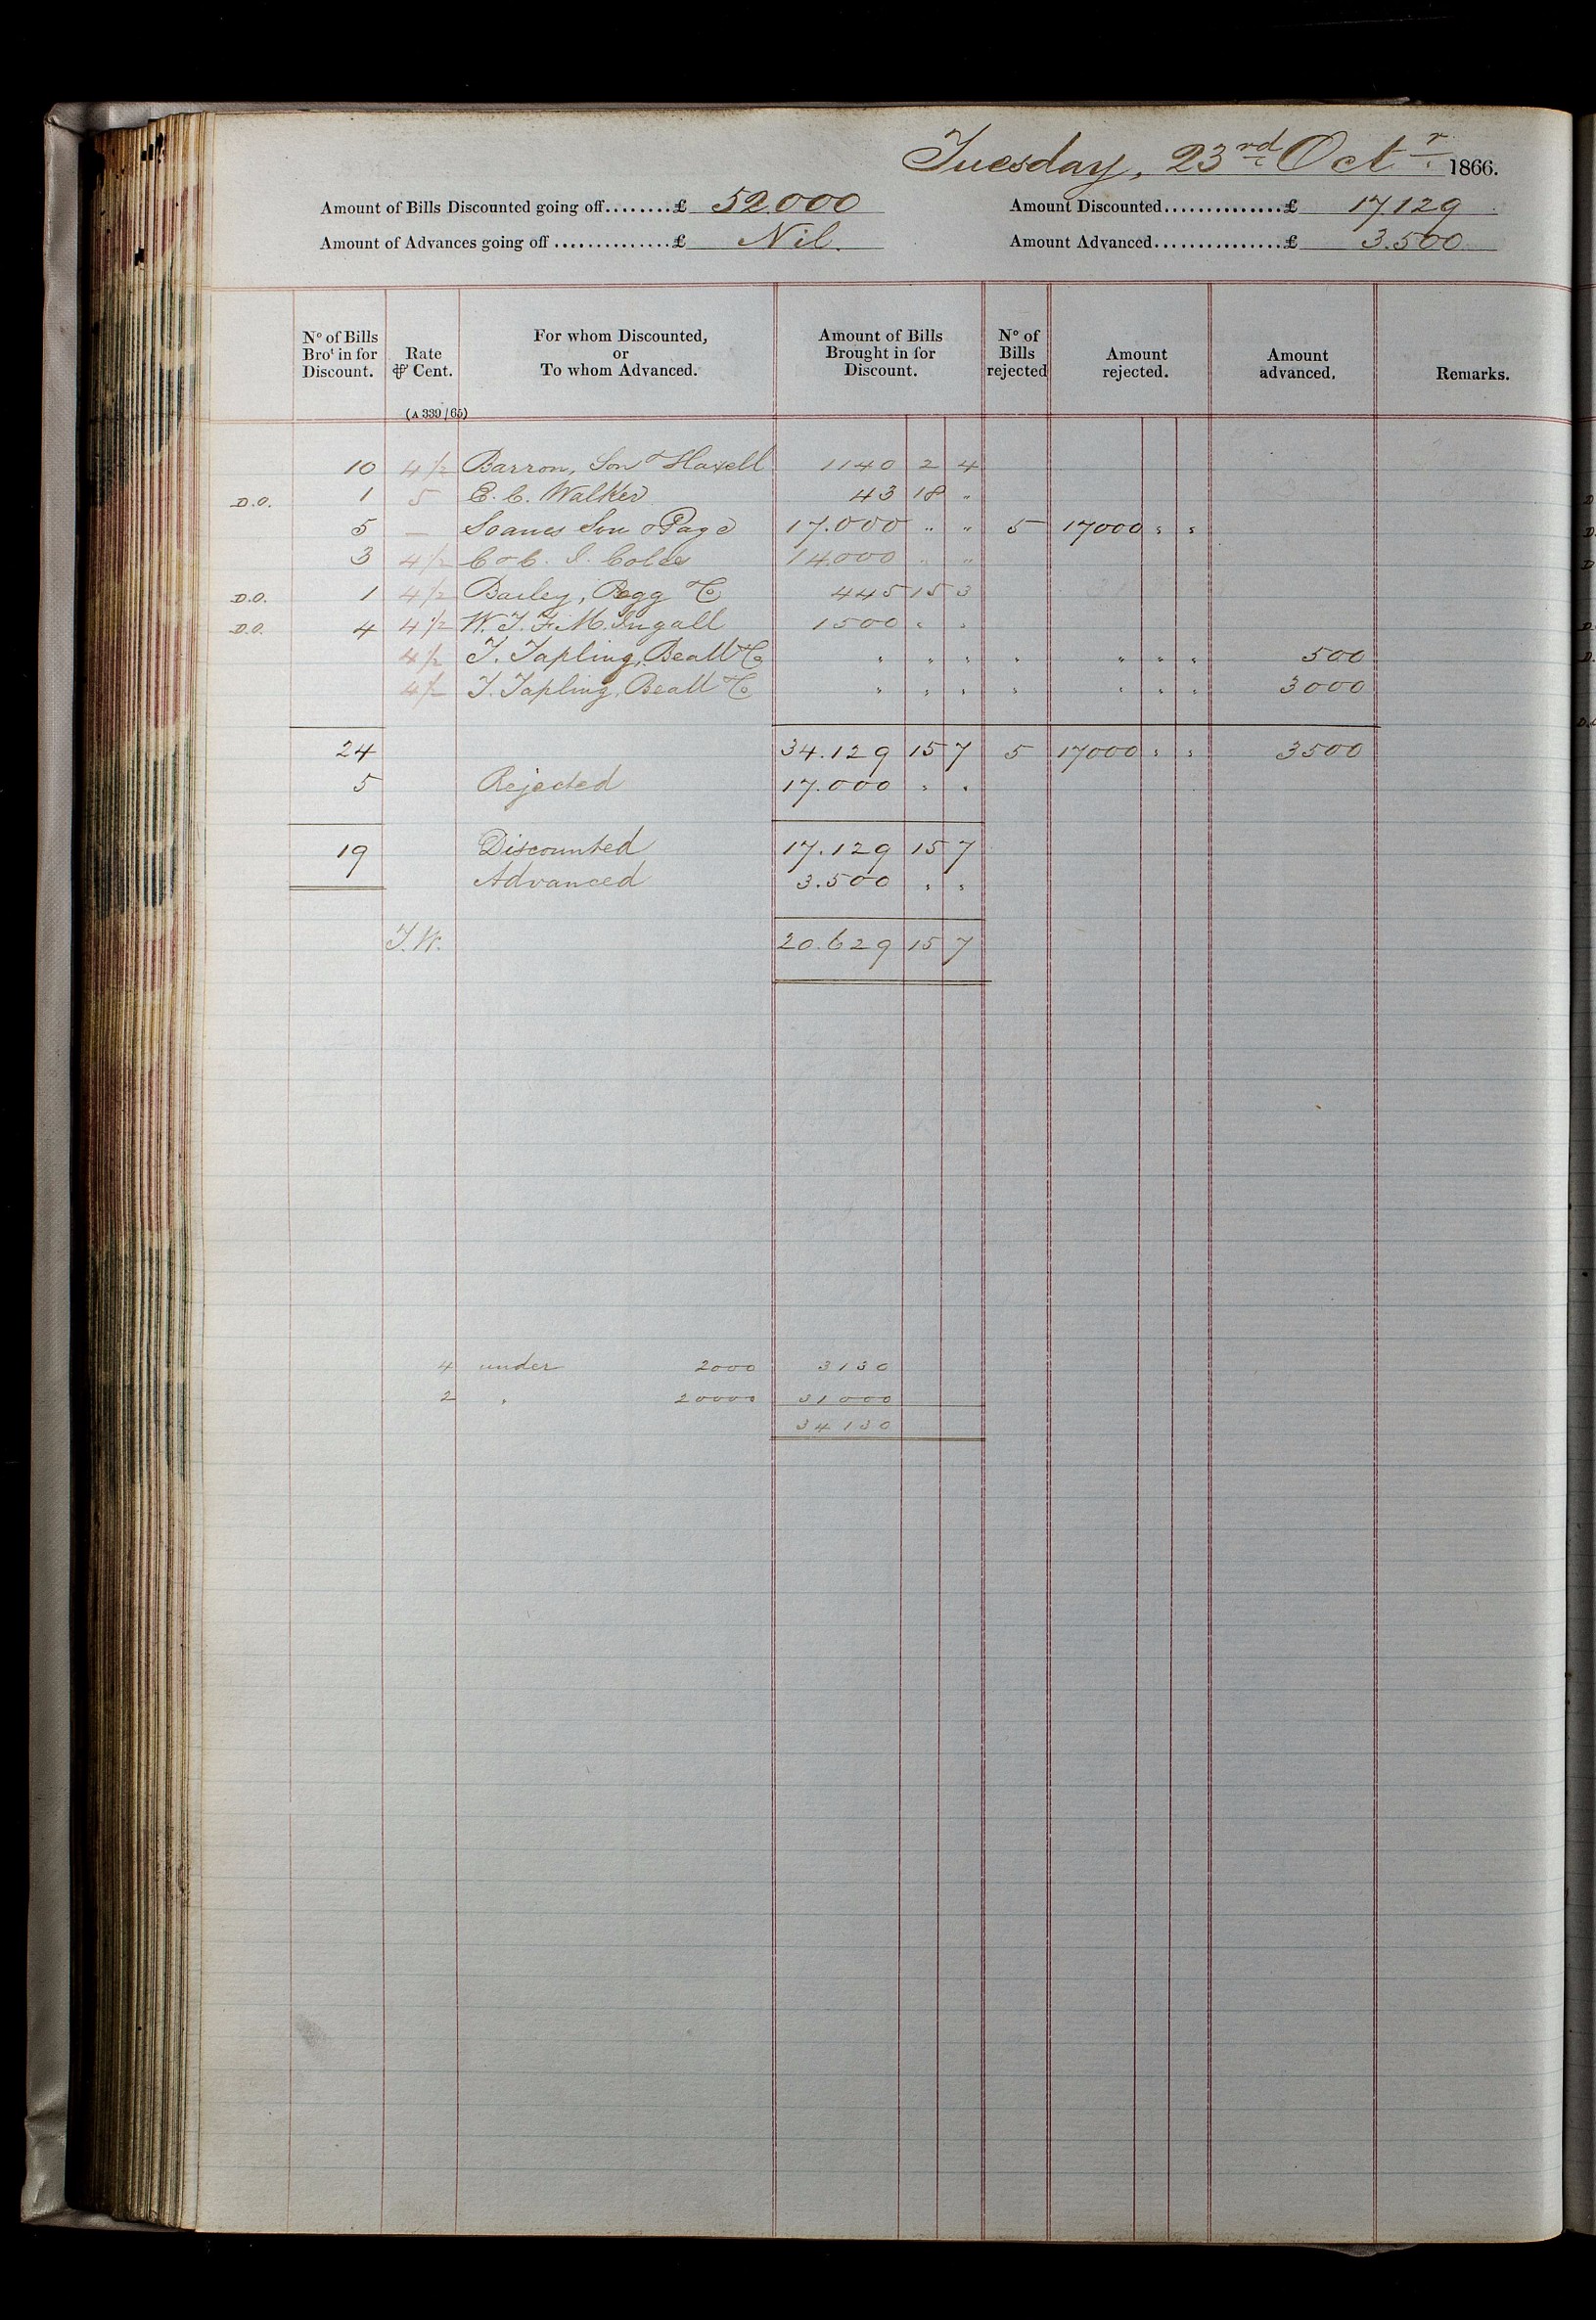 Tuesday, 23rd Octr 1866.
Amount of Bills Discounted going off........£ 52.000 Amount Discounted..............£ 17,129
Amount of Advances going off..............£ Nil. Amount Advanced...............£ 3.500
No of Bills Brot in for Discount. Rate ⅌ Cent. For whom Discounted, or To whom Advanced. Amount of Bills Brought in for Discount. No of Bills rejected Amount rejected. Amount advanced. Remarks.
(A 339/65)
10 4½ Barron, Son & Haxell 1140 2 4
D.O. 1 5 E. C. Walker 43 18 "
5 — Soanes Son & Page 17.000 " " 5 17000 " "
3 4½ C & C. I. Coles 14.000 " "
D.O. 1 4½ Bailey, Ragg & Co 445 15 3
D.O. 4 4½ W. T. F. M. Ingall 1500 " "
4½ T. Tapling, Beall & Co " " " " " " " 500
4½ T. Tapling, Beall & Co " " " " " " " 3000
24 34.129 15 7 5 17000 " " 3500
5 Rejected 17.000 " "
19 Discounted 17.129 15 7
Advanced 3.500 " "
T.W. 20.629 15 7
4 under 2000 3130
2 " 20000 31000
34130